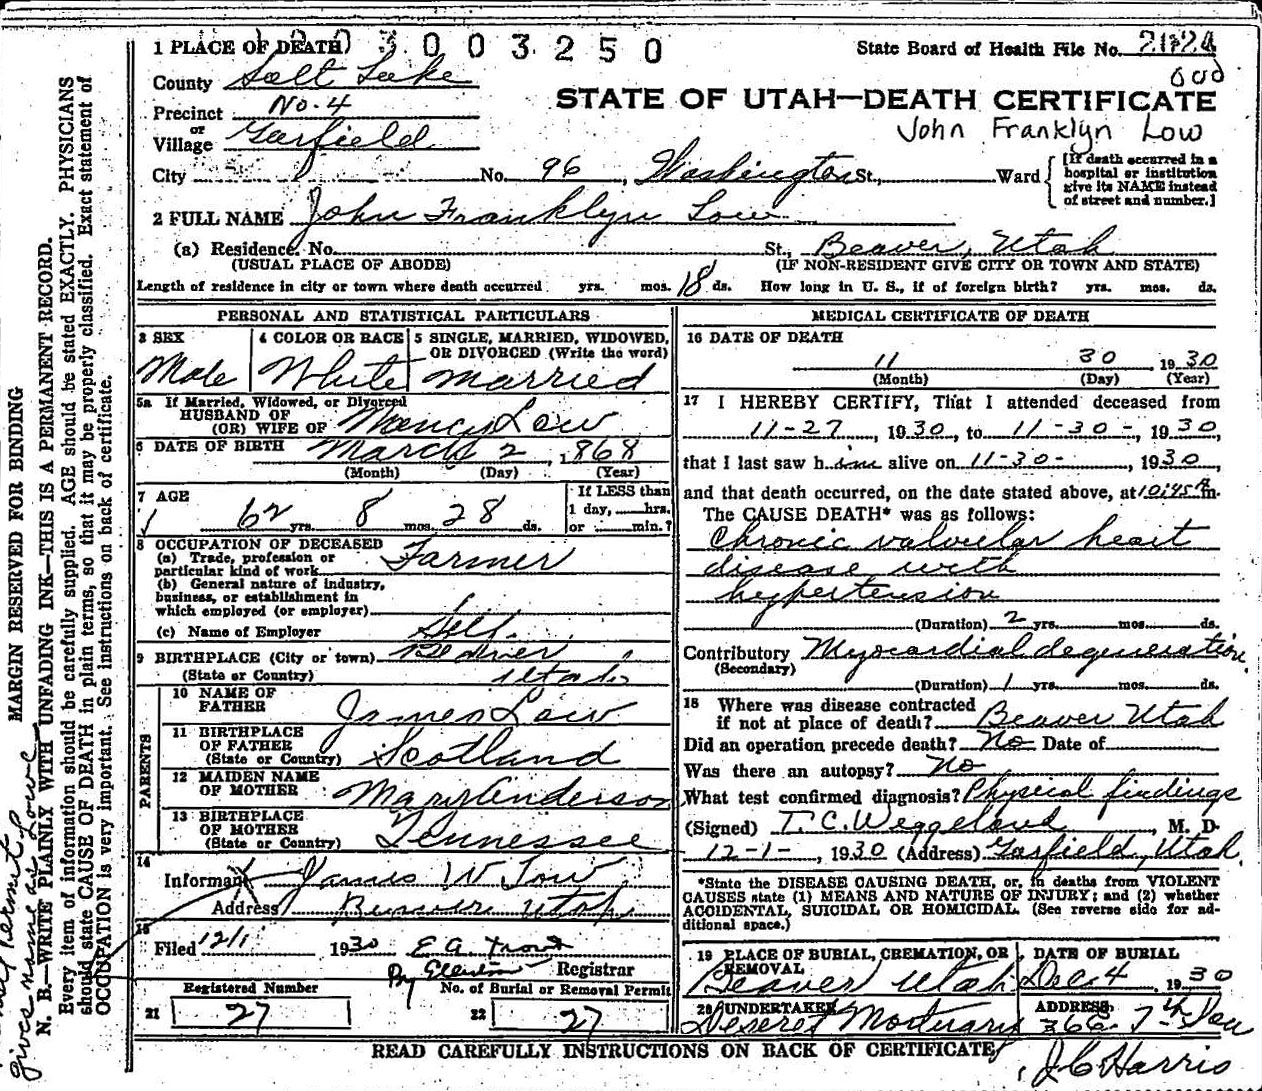 1 PLACE OF DEATH 3 0 0 3 2 5 0
State Board of Health File No. 2124
County Salt Lake
Precinct No. 4
or
Village Garfield
STATE OF UTAH—DEATH CERTIFICATE
John Franklyn Low
City No. 96, Washington St., Ward
[If death occurred in a
hospital or institution
give its NAME instead
of street and number.]
2 FULL NAME John Franklyn Low
(a) Residence. No. St., Beaver, Utah
(USUAL PLACE OF ABODE) (IF NON-RESIDENT GIVE CITY OR TOWN AND STATE)
Length of residence in city or town where death occurred yrs. mos. 18 ds. How long in U. S., if of foreign birth? yrs. mos. ds.
PERSONAL AND STATISTICAL PARTICULARS
3 SEX 4 COLOR OR RACE 5 SINGLE, MARRIED, WIDOWED,
OR DIVORCED (Write the word)
Male White Married
5a If Married, Widowed, or Divorced
HUSBAND OF
(OR) WIFE OF Nancy Low
6 DATE OF BIRTH March 2, 1868
(Month) (Day) (Year)
7 AGE
62 yrs. 8 mos. 28 ds.
If LESS than
1 day, hrs.
or min.?
8 OCCUPATION OF DECEASED
(a) Trade, profession or
particular kind of work Farmer
(b) General nature of industry,
business, or establishment in
which employed (or employer)
(c) Name of Employer Self
9 BIRTHPLACE (City or town) Beaver
(State or Country) Utah
PARENTS
10 NAME OF
FATHER James Low
11 BIRTHPLACE
OF FATHER
(State or Country) Scotland
12 MAIDEN NAME
OF MOTHER Mary Anderson
13 BIRTHPLACE
OF MOTHER
(State or Country) Tennessee
14
Informant James W Low
Address Beaver Utah
15
Filed 12/1 1930 E. A.
By Registrar
Registered Number No. of Burial or Removal Permit
21 27 22 27
MEDICAL CERTIFICATE OF DEATH
16 DATE OF DEATH
11 30 1930
(Month) (Day) (Year)
17 I HEREBY CERTIFY, That I attended deceased from
11-27, 1930, to 11-30-, 1930,
that I last saw h im alive on 11-30-, 1930,
and that death occurred, on the date stated above, at 10:45 A m.
The CAUSE DEATH* was as follows:
Chronic valvular heart
disease with
hypertension
(Duration) 2 yrs. mos. ds.
Contributory Myocardial degeneration
(Secondary)
(Duration) 1 yrs. mos. ds.
18 Where was disease contracted
if not at place of death? Beaver Utah
Did an operation precede death? No Date of
Was there an autopsy? No
What test confirmed diagnosis? Physical findings
(Signed) T. C. Weggeland, M. D.
12-1-, 1930 (Address) Garfield, Utah.
*State the DISEASE CAUSING DEATH, or, in deaths from VIOLENT
CAUSES state (1) MEANS AND NATURE OF INJURY; and (2) whether
ACCIDENTAL, SUICIDAL OR HOMICIDAL. (See reverse side for ad-
ditional space.)
19 PLACE OF BURIAL, CREMATION, OR
REMOVAL
Beaver Utah
DATE OF BURIAL
Dec 4 1930
20 UNDERTAKER
Deseret Mortuary
ADDRESS
36 E. 7th So
J C Harris
READ CAREFULLY INSTRUCTIONS ON BACK OF CERTIFICATE
MARGIN RESERVED FOR BINDING
N. B.—WRITE PLAINLY WITH UNFADING INK—THIS IS A PERMANENT RECORD.
Every item of information should be carefully supplied. AGE should be stated EXACTLY. PHYSICIANS
should state CAUSE OF DEATH in plain terms, so that it may be properly classified. Exact statement of
OCCUPATION is very important. See instructions on back of certificate.
permit
gives name as Lowe